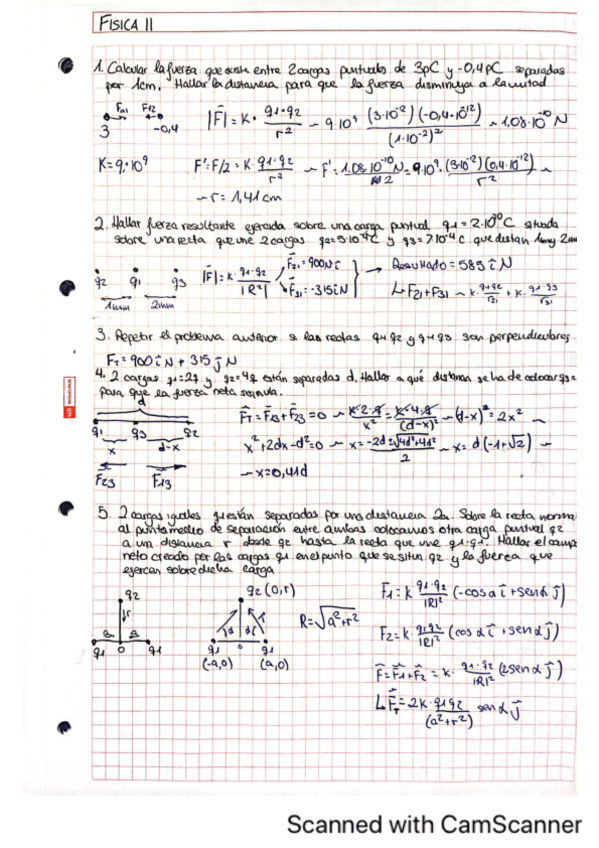 FISICA II
1. Calcular la fuerza que existe entre 2 cargas puntuales de 3pC y -0,4pC separadas
por 1cm. Hallar la distancia para que la fuerza disminuya a la mitad
F21 F12
3 -0,4
|F| = K · q1·q2 / r² ~ 9·10⁹ (3·10⁻¹²)(-0,4·10⁻¹²) / (1·10⁻²)² ~ 1,08·10⁻¹⁰ N
K = 9·10⁹ F' = F/2 = K · q1·q2 / r² ~ F' = 1,08·10⁻¹⁰ N / 2 = 9·10⁹ · (3·10⁻¹²)(0,4·10⁻¹²) / r² ~
~ r = 1,41 cm
2. Hallar fuerza resultante ejercida sobre una carga puntual situada
sobre una recta que une 2 cargas y que distan 1mm y 2mm
q2 q1 q3 |F| = K · q1·q2 / |R²| F21 = 900N i
F31 = -315 i N
Resultado = 585 i N
F21 + F31 ~ K · q1q2 / r21 + K · q1·q3 / r31
1mm 2mm
3. Repetir el problema anterior si las rectas q1 q2 y q1 q3 son perpendiculares
FT = 900 i N + 315 j N
4. 2 cargas q1=2q y q2=4q están separadas d. Hallar a qué distancia se ha de colocar q3
para que la fuerza neta sea nula.
d
q1 q3 q2
x d-x
F23 F13
FT = F13 + F23 = 0 ~ K·2·q / x² = K·4·q / (d-x)² ~ (d-x)² = 2x² ~
x² + 2dx - d² = 0 ~ x = -2d ± √4d²+4d² / 2 ~ x = d(-1+√2) ~
~ x = 0,41d
5. 2 cargas iguales q1 están separadas por una distancia 2a. Sobre la recta normal
al punto medio de separación entre ambas colocamos otra carga puntual q2
a una distancia r desde q2 hasta la recta que une q1·q1. Hallar el campo
neto creado por las cargas q1 en el punto que se situa q2 y la fuerza que
ejercen sobre dicha carga
q2
r
a a
q1 0 q1
q2 (0,r)
R = √a²+r²
α α
q1 0 q1
(-a,0) (a,0)
F1 = K q1·q2 / |R|² (-cos α i + sen α j)
F2 = K q1q2 / |R|² (cos α i + sen α j)
F = F1 + F2 = K · q1·q2 / |R|² (2 sen α j)
FT = 2K · q1q2 / (a²+r²) sen α j
Scanned with CamScanner